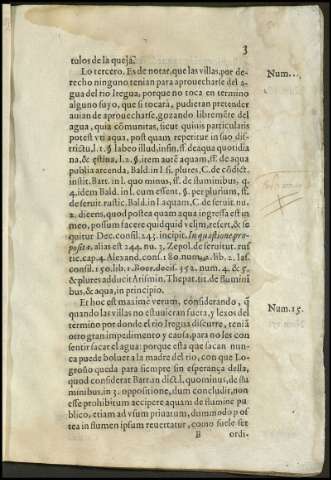 3
tulos de la queja.
Lo tercero. Es de notar, que las villas, por de-
recho ninguno tenian para aprouecharse del a-
gua del rio Iregua, porque no toca en termino
alguno suyo, que si tocarà, pudieran pretender
auian de aprouecharse, gozando libremẽte del
agua, quia cõmunitas, sicut quiuis particularis
potest vti aqua, postquam reperitur in suo dis-
trictu, l. 1. § labeo illud, infin. ff. de aqua quotidia
na, & æstiua, l. 2. §. item autẽ aquam, ff. de aqua
publia arcenda, Bald. in l. si plures, C. de cõdict.
instit. Bart. in l. quo minus, ff. de fluminibus, q.
4. idem Bald. in l. cum essent. §. per plurium, ff.
de seruit. rustic. Bald. in l aquam, C. de seruit. nu.
2. dicens, quod postea quam aqua ingressa est in
meo, possum facere quidquid velim, refert, & se
quitur Dec. consil. 243. incipit. In quæstione pro-
posita, alias est 244. nu. 3. Zepol. de seruitut. rus-
tic. cap. 4. Alexand. cons. 180. num. 2. lib. 2. Ias.
consil. 150. lib. 1. Boer. decis. 352. num. 4. & 5.
& plures adducit Arismin. Thepat. tit. de flumini
bus, & aqua, in principio.
Num. 15.
Et hoc est maxime verum, considerando, q̃
quando las villas no estuuieran fuera, y lexos del
termino por donde el rio Iregua discurre, teniã
otro gran impedimento y causa, para no les con
sentir sacar el agua: porque esta que sacan nun-
ca puede boluer a la madre del rio, con que Lo-
groño queda para siempre sin esperança della,
quod considerat Barr. an dict. l. quominus, de flu
minibus, in 3. oppositione, dum concludit, non
esse prohibitum accipere aquam de flumine pu-
blico, etiam ad vsum priuatum, dummodo pos
tea in flumen ipsum reuertatur, como suele ser
B ordi-